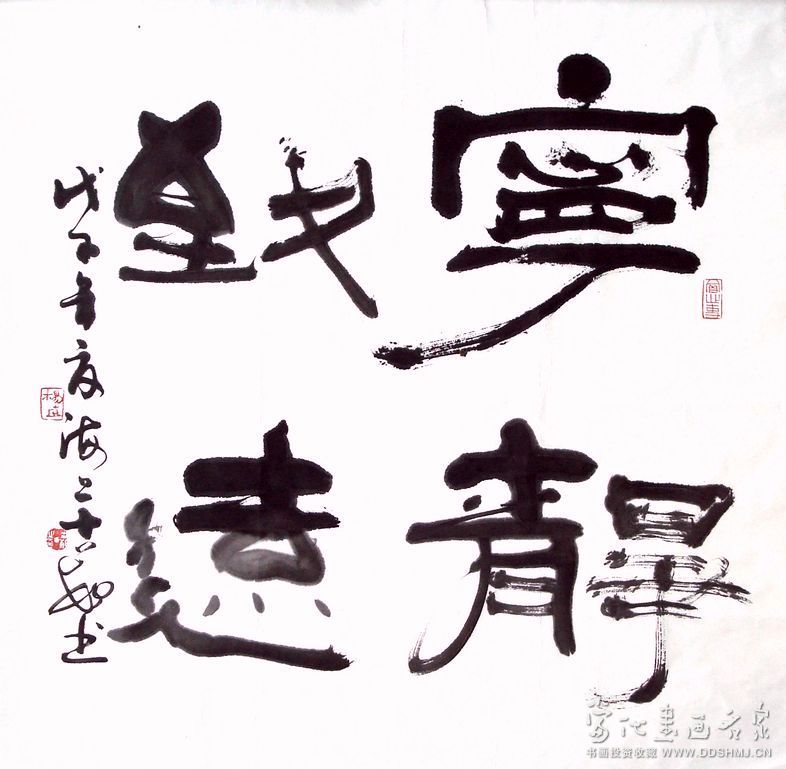 寧靜
致遠
戊子年夏海上
楊
當代書画名家
书画投资收藏 WWW.DDSHMJ.CN